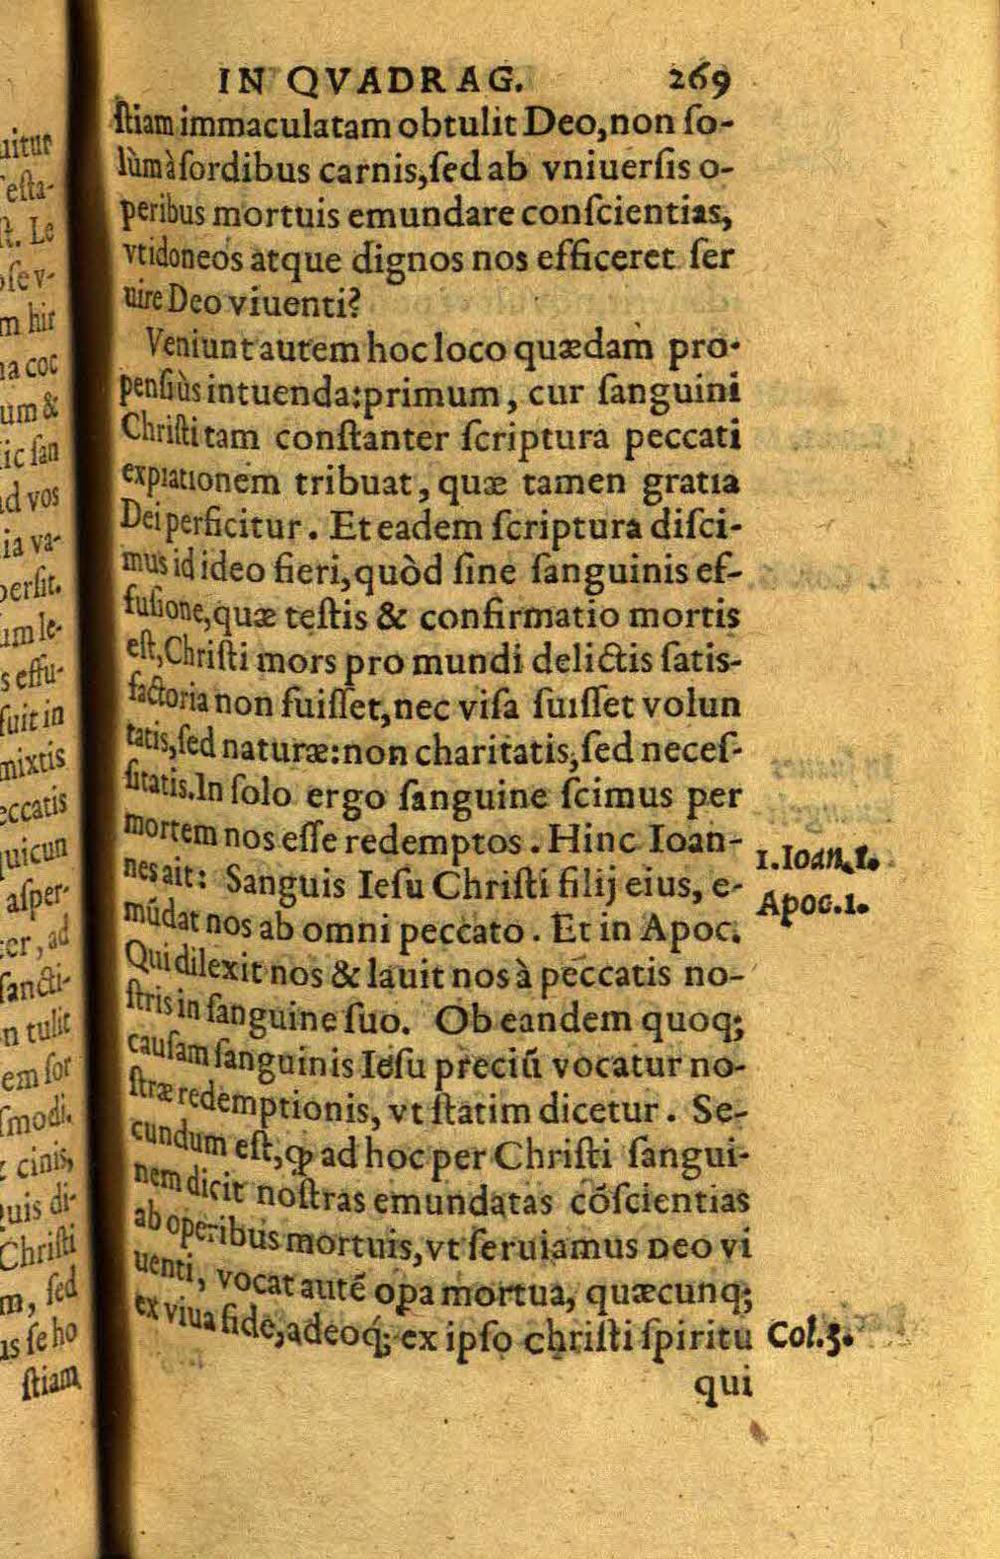 IN QVADRAG. 269
ſtiam immaculatam obtulit Deo, non ſo-
lùm à ſordibus carnis, ſed ab vniuerſis o-
peribus mortuis emundare conſcientias,
vt idoneos atque dignos nos efficeret ſer
uire Deo viuenti?
Veniunt autem hoc loco quædam pro-
penſiùs intuenda: primum, cur ſanguini
Chriſti tam conſtanter ſcriptura peccati
expiationem tribuat, quæ tamen gratia
Dei perficitur. Et eadem ſcriptura diſci-
mus id ideo fieri, quòd ſine ſanguinis ef-
fuſione, quæ teſtis & confirmatio mortis
eſt, Chriſti mors pro mundi delictis ſatis-
factoria non fuiſſet, nec viſa fuiſſet volun
tatis, ſed naturæ: non charitatis, ſed neceſ-
ſitatis. In ſolo ergo ſanguine ſcimus per
mortem nos eſſe redemptos. Hinc Ioan-
nes ait: Sanguis Ieſu Chriſti filij eius, e-
mūdat nos ab omni peccato. Et in Apoc.
Qui dilexit nos & lauit nos à peccatis no-
ſtris in ſanguine ſuo. Ob eandem quoq;
cauſam ſanguinis Ieſu preciū vocatur no-
ſtræ redemptionis, vt ſtatim dicetur. Se-
cundum eſt, ꝙ ad hoc per Chriſti ſangui-
nem dicit noſtras emundatas cōſcientias
ab operibus mortuis, vt ſeruiamus Deo vi
uenti, vocat autē opa mortua, quæcunq;
ex viua fide, adeoq́; ex ipſo chriſti ſpiritu
qui
1. Ioan. 1.
Apoc. 1.
Col. 3.
uitur
eſta-
ſt. Le
ſe v-
m hir
a coc
um &
ic ſan
d vos
ia va-
perſit.
um le-
s effu-
fuit in
mixtis
eccatis
uicun
aſper-
er, ad
ſancti-
n tulit
em ſor
ſmodi.
cinis,
uis di-
Chriſti
m, ſed
us ſe ho
ſtiam